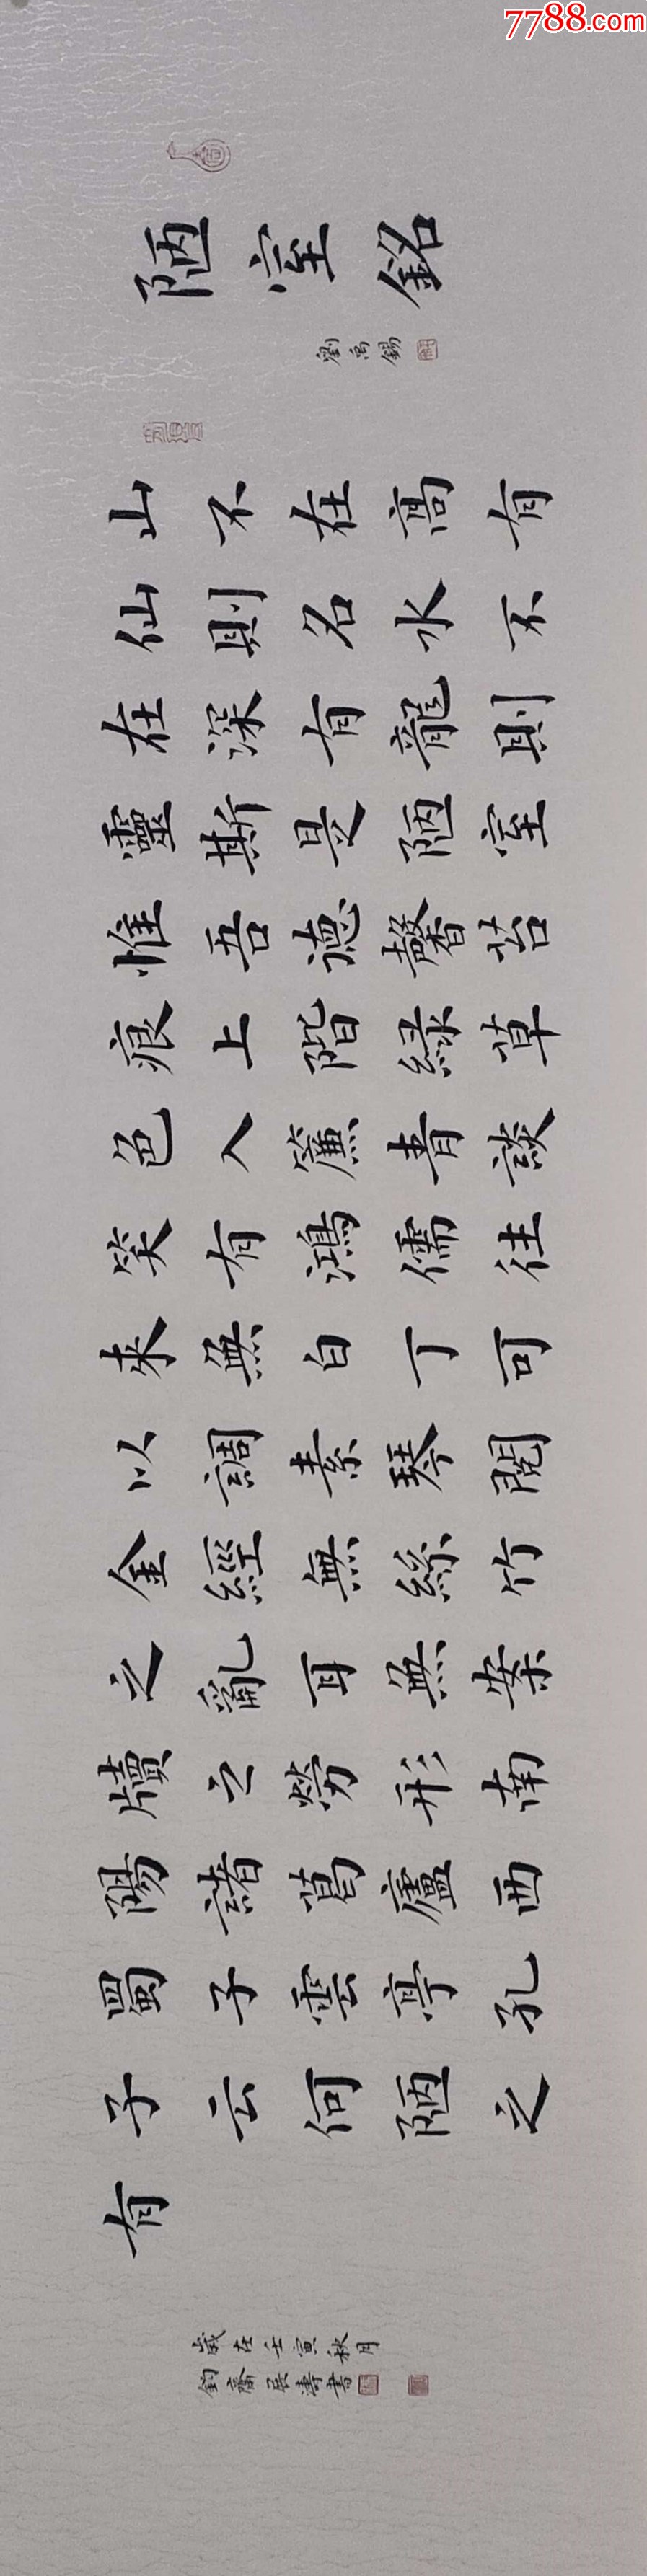 7788.com
陋室銘
劉禹錫
山不在高有
仙則名水不
在深有龍則
靈斯是陋室
惟吾德馨苔
痕上階緑草
色入簾青談
笑有鴻儒往
來無白丁可
以調素琴閱
金經無絲竹
之亂耳無案
牘之勞形南
陽諸葛廬西
蜀子雲亭孔
子云何陋之
有
歲在壬寅秋月
齋 濤書